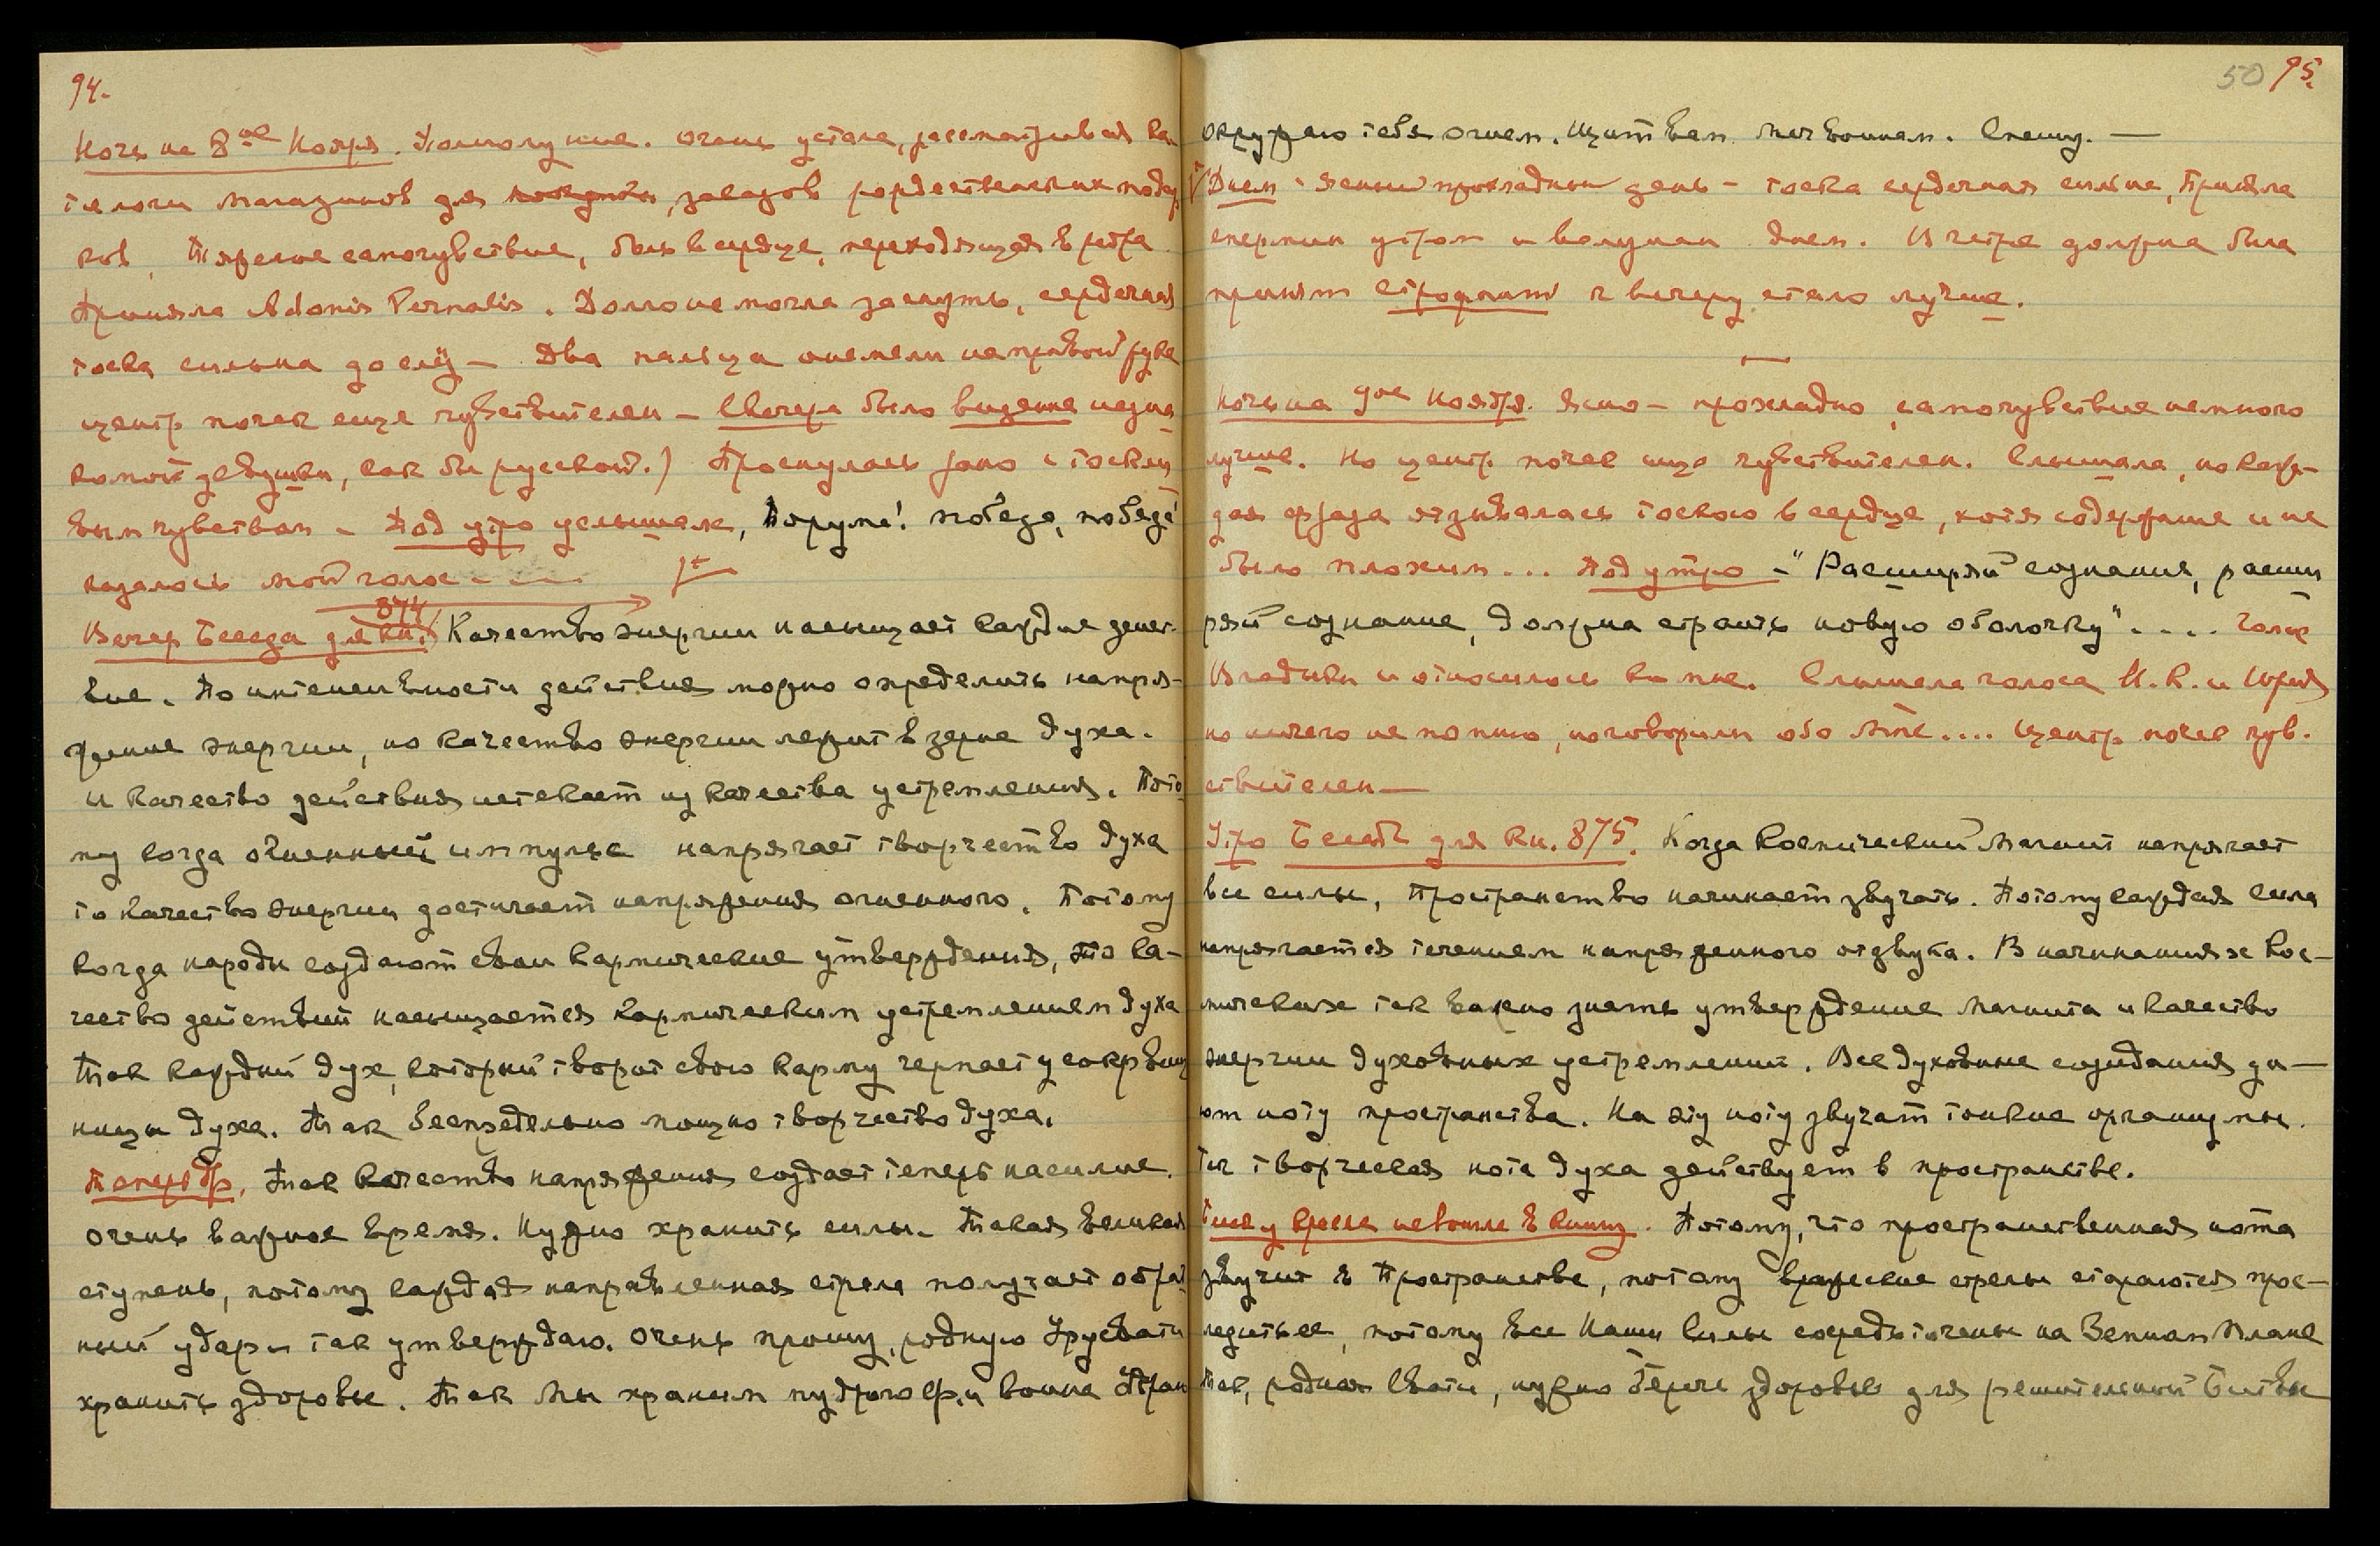 94.
Ночь на 8ое Ноября. Полнолуние. Очень устала, рассматривая ка-
талоги магазинов для покупки, заказов рождественских подар
ков. Тяжелое самочувствие, боль в сердце, переходящая в ребра
Приняла Adonis Vernalis. Долго не могла заснуть, сердечная
тоска сильна до слёз – Два пальца онемели на правой руке
центр почек еще чувствителен – Свечера было видение незна
комой дедушки, как бы русской.) Проснулась рано с тоскли
вым чувством – Под утро услышала, Поруме! победа, победа!
казалось мой голос - - - -
874
Вечер Беседа для кн. Качество энергии насыщает каждое дейст-
вие. По интенсивности действия можно определить напря-
жение энергии, но качество энергии лежит в зерне духа.
И качество действия истекает из качества устремления. Пото
му когда огненный импульс напрягает творчество духа
то качество энергии достигает напряжения огненного. Потому
когда народы создают свои кармические утверждения, то ка-
чество действий насыщается кармическим устремлением духа
Так каждый дух, который творит свою карму черпает у сокрови
щницы духа. Так беспредельно мощно творчество духа.
Теперь др. Так качество напряжения создает теперь насилие.
Очень важное время. Нужно хранить силы. Такая великая
ступень, потому каждая направленная стрела получает обрат
ный удар – так утверждаю. Очень прошу, родную Урусвати
хранить здоровье. Так Мы храним мудрого Ф. и воина
50 95.
окружаю тебя огнем. Щит вам Меч воинам. Спешу. —
Днем – Ясный прохладный день – тоска сердечная сильна, Приняла
спермин утром и валериан днем. В четыре должна была
принять строфант к вечеру стало лучше.
—
Ночь на 9ое Ноября. Ясно – прохладно, самочувствие немного
лучше. Но центр почек еще чувствителен. Слышала, но каж-
дая фраза отзывалась тоскою в сердце, хотя содержание и не
было плохим... Под утро – "Расширяй сознание, расши
ряй сознание, должна строить новую оболочку".... Голос
Владыки и относилось ко мне. Слышала голоса Н.К. и Юрия
но ничего не помню, но говорили обо мне.... Центр почек чув-
ствителен —
Утро Беседа для кн. 875. Когда Космический Магнит напрягает
все силы, Пространство начинает звучать. Потому каждая сила
напрягается течением напряженного отзвука. В начинаниях кос-
мических так важно знать утверждение Магнита и качество
энергии духовных устремлений. Все духовные созидания да-
ют ноту пространства. На эту ноту звучат тонкие организмы.
Так творческая нота духа действует в пространстве.
не вошле в книгу. Потому, что пространственная нота
звучит в Пространстве, потому вражеские стрелы стараются прос-
ледить ее, потому все Наши Силы сосредоточены на Земном Плане
Так, родная Свати, нужно беречь здоровье для решительной Битвы